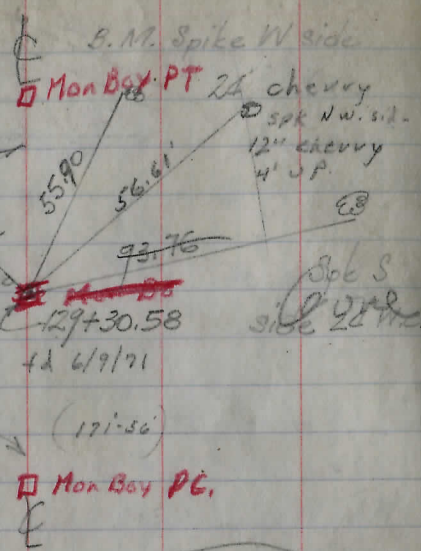 B.M. Spike W side
Mon Box PT
24" cherry
spk N.W. sid
12" cherry
4' UP.
55.90
56.61'
93.76
Spk S
side 24"
129+30.58
6/9/71
Mon Box PC.